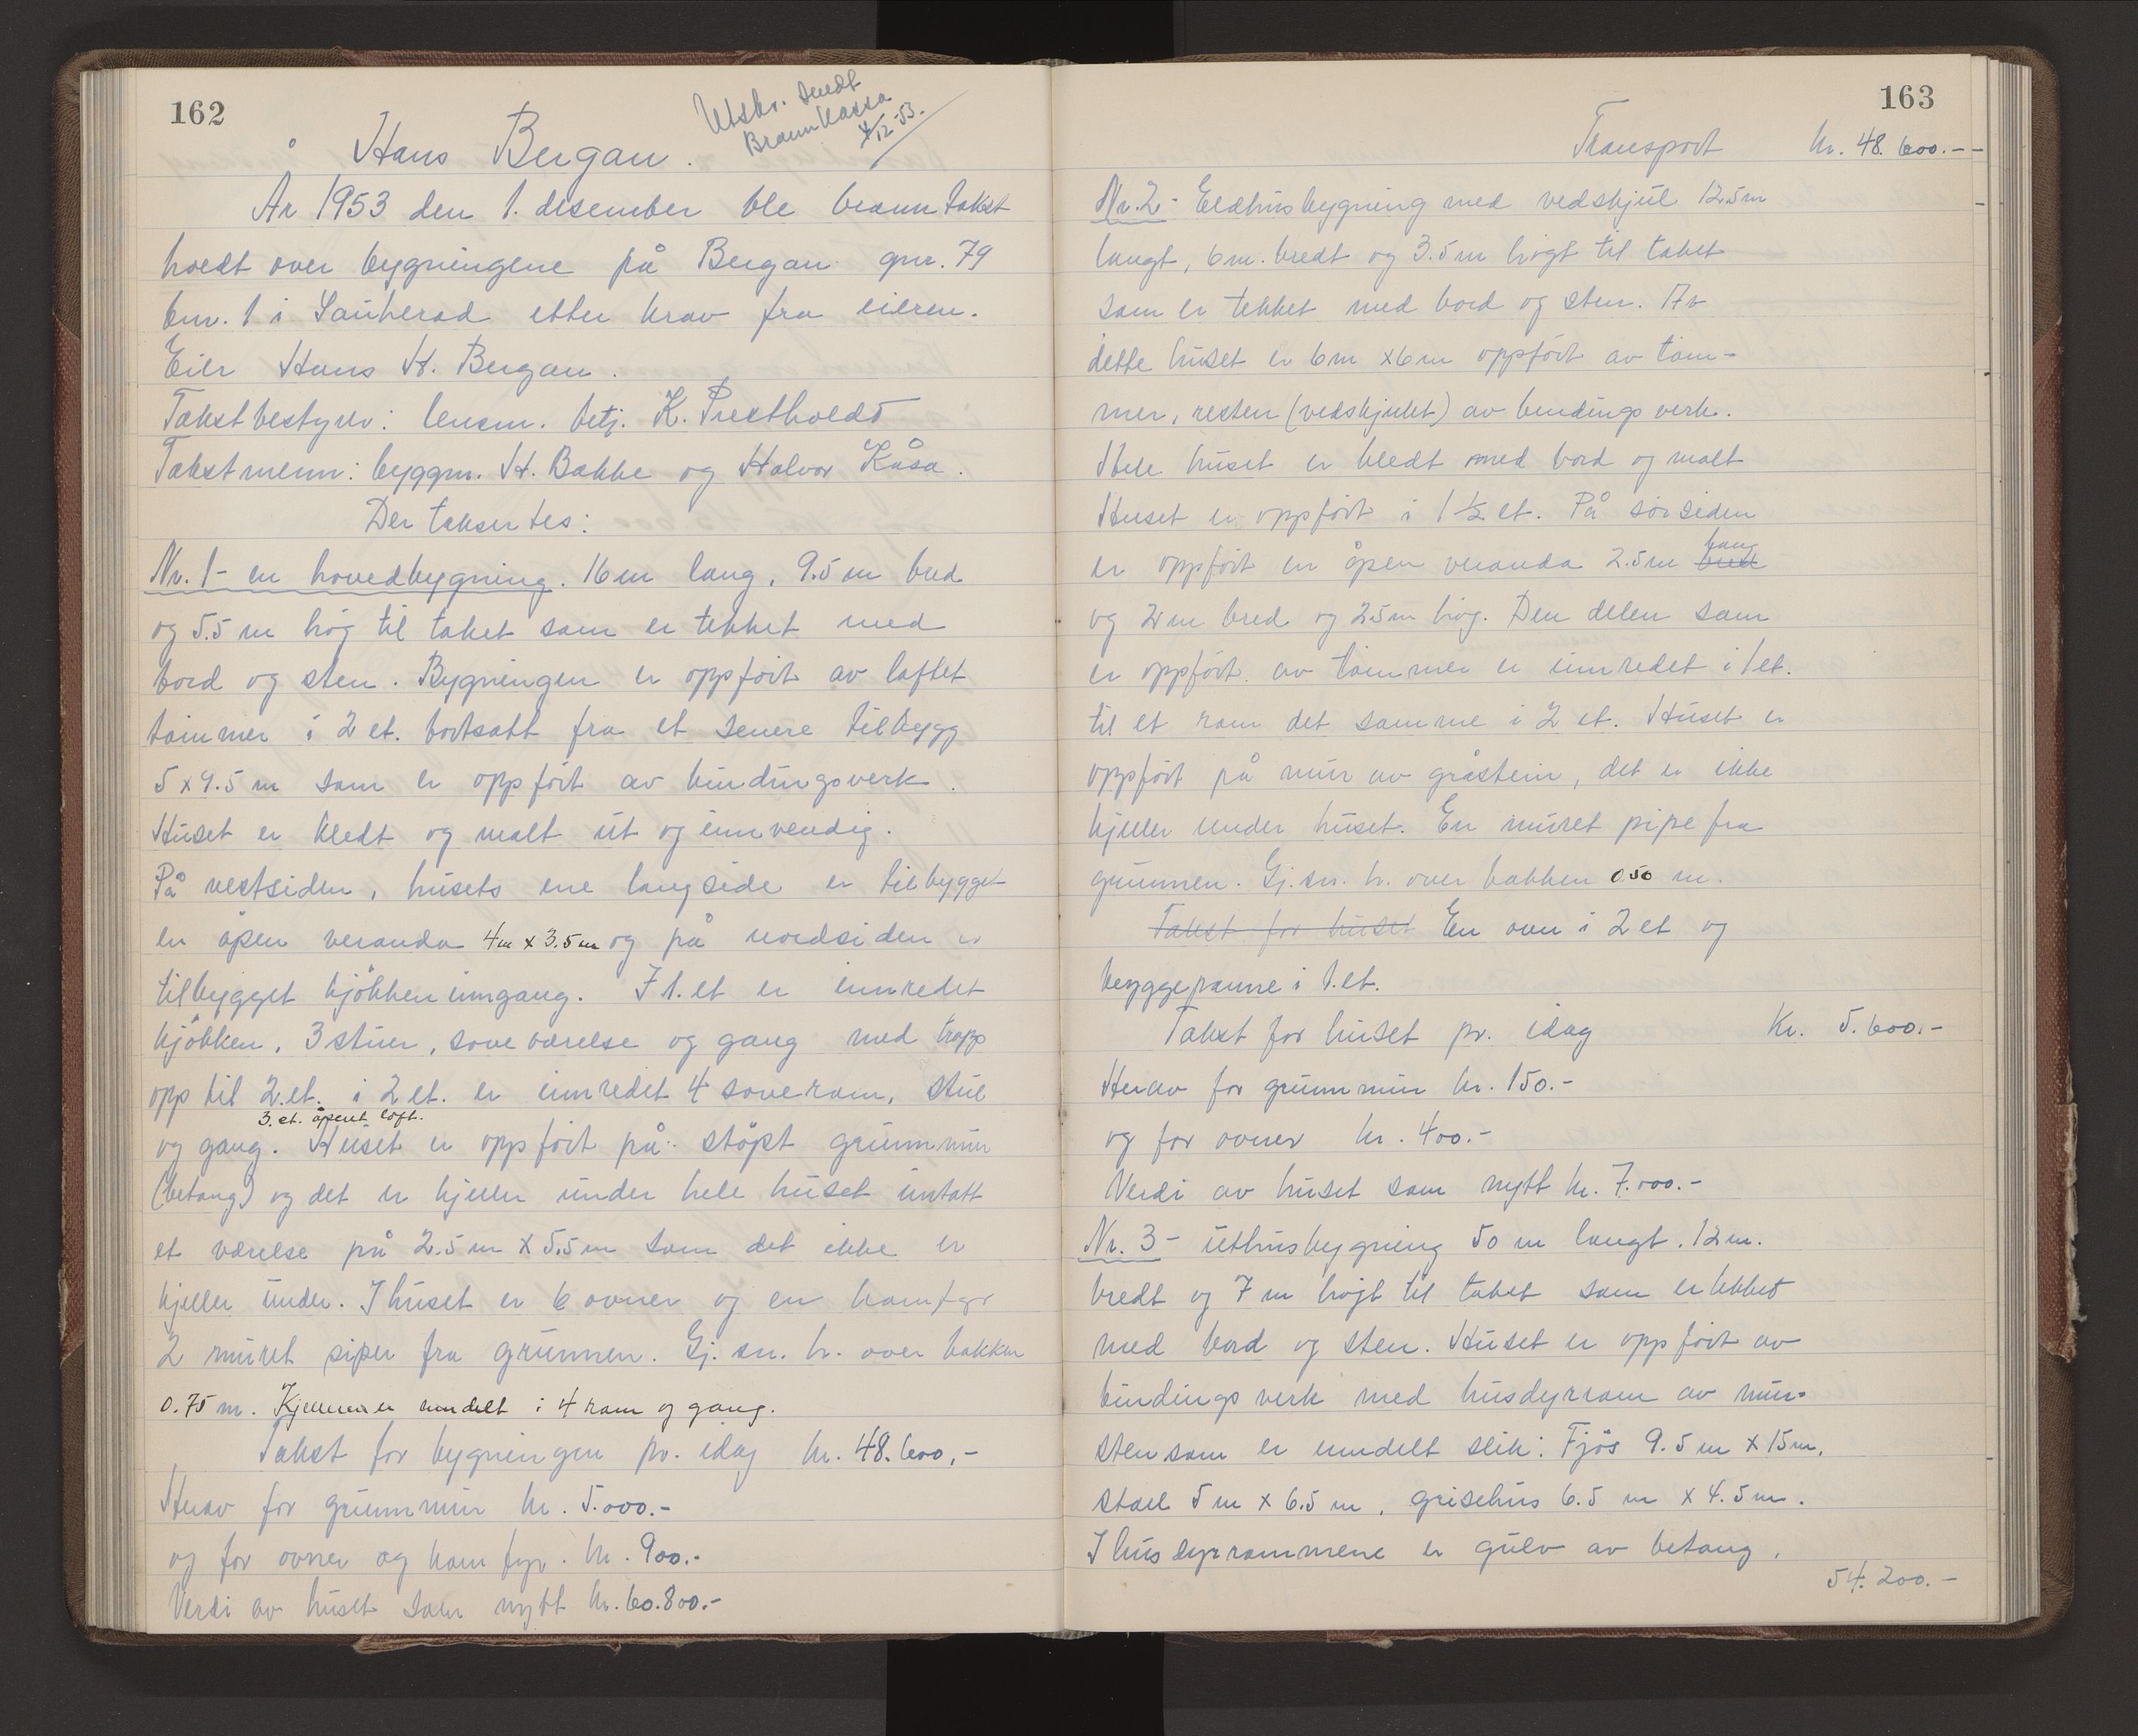 162
Utskr. sendt
Brannkassa
4/12-53.
Hans Bergan.
År 1953 den 1. desember ble branntakst
holdt over bygningene på Bergan gnr. 79
bnr. 1 i Sauherad etter krav fra eieren.
Eier Hans H. Bergan.
Takstbestyrer: lensm. betj. K. Prestholdt
Takstmenn: byggm. H. Bakke og Halvor Kåsa.
Der taksertes:
Nr. 1 - en hovedbygning. 16 m lang, 9.5 m bred
og 5.5 m høg til taket som er tekket med
bord og sten. Bygningen er oppført av laftet
tømmer i 2 et. bortsatt fra et senere tilbygg
5 x 9.5 m som er oppført av bindingsverk.
Huset er kledt og malt ut og innvendig.
På vestsiden, husets ene langside er tilbygget
en åpen veranda 4m x 3.5m og på nordsiden er
tilbygget kjøkkeninngang. I 1. et er innredet
kjøkken, 3 stuer, soveværelse og gang med trapp
opp til 2. et. i 2 et. er innredet 4 soverom, stue
3. et. åpent loft.
og gang. Huset er oppført på støpt grunnmur
(betong) og det er kjeller under hele huset untatt
et værelse på 2.5 m x 5.5 m som det ikke er
kjeller under. I huset er 6 ovner og en komfyr
2 muret piper fra grunnen. Gj. sn. h. over bakken
0.75 m. Kjelleren er inndelt i 4 rom og gang.
Takst for bygningen pr. idag kr. 48.600,-
Herav for grunnmur kr. 5.000.-
og for ovner og komfyr. kr. 900.-
Verdi av huset som nytt kr. 60.800.-
163
Transport kr. 48.600.--
Nr. 2 - Eldhusbygning med vedskjul 12.5 m
langt, 6 m. bredt og 3.5 m høgt til taket
som er tekket med bord og sten. Av
dette huset er 6m x 6m oppført av tøm-
mer, resten (vedskjulet) av bindingsverk.
Hele huset er kledt med bord og malt
Huset er oppført i 1 ½ et. På sørsiden
er oppført en åpen veranda 2.5 m bred lang
og 2 m bred og 2.5 m høg. Den delen som
er oppført av tømmer er innredet i 1 et.
til et rom det samme i 2 et. Huset er
oppført på mur av gråstein, det er ikke
kjeller under huset. En muret pipe fra
grunnen. Gj. sn. h. over bakken 0.50 m.
Takst for huset En ovn i 2 et og
bryggepanne i 1. et.
Takst for huset pr. idag Kr. 5.600.-
Herav for grunnmur kr. 150.-
og for ovner kr. 400.-
Verdi av huset som nytt kr. 7.000.-
Nr. 3 - uthusbygning 50 m langt. 12 m.
bredt og 7 m høgt til taket som er tekket
med bord og sten. Huset er oppført av
bindingsverk med husdyrrom av mur-
sten som er inndelt slik: Fjøs 9.5 m x 15 m,
stall 5 m x 6.5 m, grisehus 6.5 m x 4.5 m.
I husdyrrommene er gulv av betong,
54.200.-